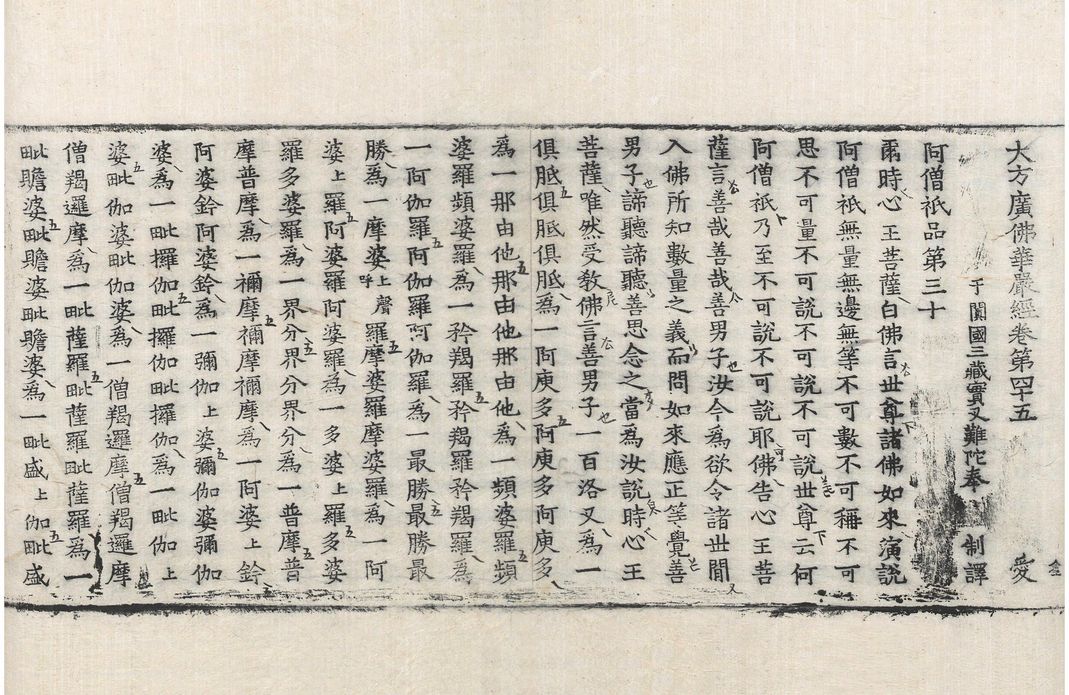 大方廣佛華嚴經卷第四十五 愛
于闐國三藏實叉難陀奉 制譯
阿僧祇品第三十
爾時心王菩薩白佛言世尊諸佛如來演說
阿僧祇無量無邊無等不可數不可稱不可
思不可量不可說不可說不可說世尊云何
阿僧祇乃至不可說不可說耶佛告心王菩
薩言善哉善哉善男子汝今爲欲令諸世間
入佛所知數量之義而問如來應正等覺善
男子諦聽諦聽善思念之當爲汝說時心王
菩薩唯然受教佛言善男子一百洛叉爲一
俱胝俱胝俱胝爲一阿庾多阿庾多阿庾多
爲一那由他那由他那由他爲一頻婆羅頻
婆羅頻婆羅爲一矜羯羅矜羯羅矜羯羅爲
一阿伽羅阿伽羅阿伽羅爲一最勝最勝最
勝爲一摩婆上聲呼羅摩婆羅摩婆羅爲一阿
婆上羅阿婆羅阿婆羅爲一多婆上羅多婆
羅多婆羅爲一界分界分界分爲一普摩普
摩普摩爲一禰摩禰摩禰摩爲一阿婆上鈐
阿婆鈐阿婆鈐爲一彌伽上婆彌伽婆彌伽
婆爲一毗攞伽毗攞伽毗攞伽爲一毗伽上
婆毗伽婆毗伽婆爲一僧羯邏摩僧羯邏摩
僧羯邏摩爲一毗薩羅毗薩羅毗薩羅爲一
毗贍婆毗贍婆毗贍婆爲一毗盛上伽毗盛